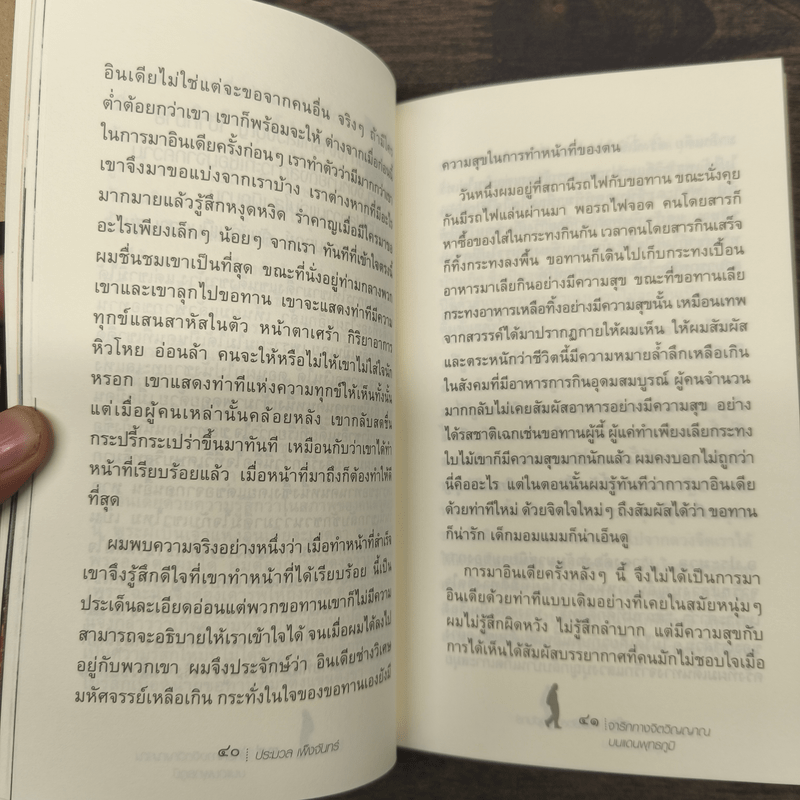 อินเดียไม่ใช่แต่จะขอจากคนอื่น จริงๆ ถ้ามีใคร
ต่ำต้อยกว่าเขา เขาก็พร้อมจะให้ ต่างจากเมื่อก่อนนี้
ในการมาอินเดียครั้งก่อนๆ เราทำตัวว่ามีมากกว่าเขา
เขาจึงมาขอแบ่งจากเราบ้าง เราต่างหากที่มีอะไร
มากมายแล้วรู้สึกหงุดหงิด รำคาญเมื่อมีใครมาขอ
อะไรเพียงเล็กๆ น้อยๆ จากเรา ทันทีที่เข้าใจตรงนี้
ผมชื่นชมเขาเป็นที่สุด ขณะที่นั่งอยู่ท่ามกลางพวก
เขาและเขาลุกไปขอทาน เขาจะแสดงท่าทีมีความ
ทุกข์แสนสาหัสในตัว หน้าตาเศร้า กิริยาอาการ
หิวโหย อ่อนล้า คนจะให้หรือไม่ให้เขาไม่ใส่ใจนัก
หรอก เขาแสดงท่าทีแห่งความทุกข์ให้เห็นทั้งนั้น
แต่เมื่อผู้คนเหล่านั้นคล้อยหลัง เขากลับสดชื่น
กระปรี้กระเปร่าขึ้นมาทันที เหมือนกับว่าเขาได้ทำ
หน้าที่เรียบร้อยแล้ว เมื่อหน้าที่มาถึงก็ต้องทำให้ดี
ที่สุด
ผมพบความจริงอย่างหนึ่งว่า เมื่อทำหน้าที่สำเร็จ
เขาจึงรู้สึกดีใจที่เขาทำหน้าที่ได้เรียบร้อย นี้เป็น
ประเด็นละเอียดอ่อนแต่พวกขอทานเขาก็ไม่มีความ
สามารถจะอธิบายให้เราเข้าใจได้ จนเมื่อผมได้ลงไป
อยู่กับพวกเขา ผมจึงประจักษ์ว่า อินเดียช่างวิเศษ
มหัศจรรย์เหลือเกิน กระทั่งในใจของขอทานเองยังมี
๔๐ ประมวล เพ็งจันทร์
ความสุขในการทำหน้าที่ของตน
วันหนึ่งผมอยู่ที่สถานีรถไฟกับขอทาน ขณะนั่งคุย
กันมีรถไฟแล่นผ่านมา พอรถไฟจอด คนโดยสารก็
หาซื้อของใส่ในกระทงกินกัน เวลาคนโดยสารกินเสร็จ
ก็ทิ้งกระทงลงพื้น ขอทานก็เดินไปเก็บกระทงเปื้อน
อาหารมาเลียกินอย่างมีความสุข ขณะที่ขอทานเลีย
กระทงอาหารเหลือทิ้งอย่างมีความสุขนั้น เหมือนเทพ
จากสวรรค์ได้มาปรากฏกายให้ผมเห็น ให้ผมสัมผัส
และตระหนักว่าชีวิตนี้มีความหมายล้ำลึกเหลือเกิน
ในสังคมที่มีอาหารการกินอุดมสมบูรณ์ ผู้คนจำนวน
มากกลับไม่เคยสัมผัสอาหารอย่างมีความสุข อย่าง
ได้รสชาติเฉกเช่นขอทานผู้นี้ ผู้แค่ทำเพียงเลียกระทง
ใบไม้เขาก็มีความสุขมากนักแล้ว ผมคงบอกไม่ถูกว่า
นี่คืออะไร แต่ในตอนนั้นผมรู้ทันทีว่าการมาอินเดีย
ด้วยท่าทีใหม่ ด้วยจิตใจใหม่ๆ ถึงสัมผัสได้ว่า ขอทาน
ก็น่ารัก เด็กมอมแมมก็น่าเอ็นดู
การมาอินเดียครั้งหลังๆ นี้ จึงไม่ได้เป็นการมา
อินเดียด้วยท่าทีแบบเดิมอย่างที่เคยในสมัยหนุ่มๆ
ผมไม่รู้สึกผิดหวัง ไม่รู้สึกลำบาก แต่มีความสุขกับ
การได้เห็นได้สัมผัสบรรยากาศที่คนมักไม่ชอบใจเมื่อ
๔๑ จาริกทางจิตวิญญาณ
บนแดนพุทธภูมิ